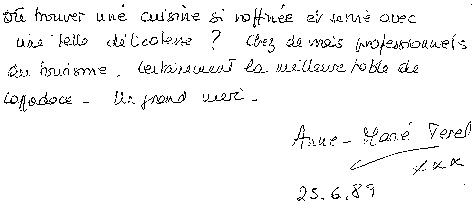 Où trouver une cuisine si raffinée et servie avec
une telle délicatesse ? Chez de vrais professionnels
du tourisme. Certainement la meilleure table de
Cappadoce - Un grand merci -
Anne-Marie Terel
xxx
25.6.89